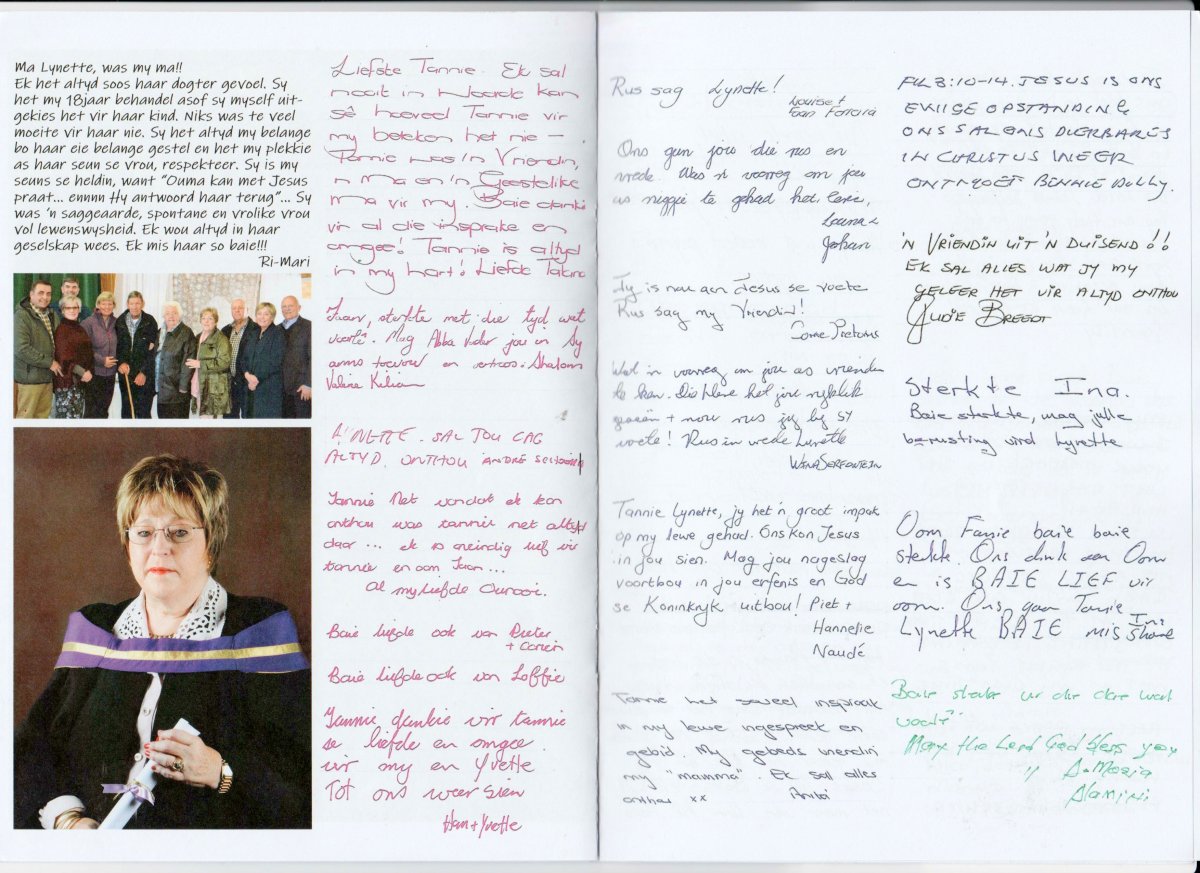 Ma Lynette, was my ma!!
Ek het altyd soos haar dogter gevoel. Sy
het my 18jaar behandel asof sy myself uit-
gekies het vir haar kind. Niks was te veel
moeite vir haar nie. Sy het altyd my belange
bo haar eie belange gestel en het my plekkie
as haar seun se vrou, respekteer. Sy is my
seuns se heldin, want “Ouma kan met Jesus
praat... ennnn Hy antwoord haar terug”... Sy
was ‘n saggeaarde, spontane en vrolike vrou
vol lewenswysheid. Ek wou altyd in haar
geselskap wees. Ek mis haar so baie!!!
Ri-Mari
Liefste Tannie. Ek sal
nooit in woorde kan
sê hoeveel Tannie vir
my beteken het nie –
Tannie was 'n Vriendin,
'n Ma en 'n Geestelike
Ma vir my. Baie dankie
vir al die insprake en
omgee! Tannie is altyd
in my hart! Liefde
sterkte met die tyd wat
voorlê. Mag Abba Vader jou in Sy
arms toevou en vertroos. Shalom
SAL JOU LAG
ALTYD ONTHOU ANDRÉ
Tannie Net vandat ek kan
onthou was tannie net altyd
daar ... ek is oneindig lief vir
tannie en oom Jaan...
Al my liefde Ounooi.
Baie liefde ook van Pieter
+ Corien
Baie liefde ook van Loffie
Tannie dankie vir tannie
se liefde en omgee
vir my en Yvette
Tot ons weer sien
Han + Yvette
Rus sag Lynette!
Louise +
Ons gun jou die rus en
vrede. Was 'n voorreg om jou
as niggie te gehad het.
Johan
Jy is nou aan Jesus se voete
Rus sag my Vriendin!
Pretorius
Wat 'n voorreg om jou as vriendin
te ken. Die Here het jou ryklik
geseën + nou rus jy by Sy
voete! Rus in vrede Lynette
WINA SERFONTEIN
Tannie Lynette, jy het 'n groot impak
op my lewe gehad. Ons kon Jesus
in jou sien. Mag jou nageslag
voortbou in jou erfenis en God
se Koninkryk uitbou! Piet +
Hannelie
Naudé
Tannie het soveel inspraak
in my lewe ingespreek en
gebid. My gebeds vriendin
my "mamma". Ek sal alles
onthou xx
FIL 3:10-14. JESUS IS ONS
EWIGE OPSTANDING
ONS SAL ONS DIERBARES
IN CHRISTUS WEER
ONTMOET BENNIE DOLLY.
'N VRIENDIN UIT 'N DUISEND!!
EK SAL ALLES WAT JY MY
GELEER HET VIR ALTYD ONTHOU
JUDIE BREEDT
Sterkte Ina.
Baie sterkte, mag julle
berusting vind Lynette
Oom Fanie baie baie
sterkte. Ons dink aan Oom
en is BAIE LIEF vir
oom. Ons gaan Tannie
Lynette BAIE mis
Baie sterkte vir die dae wat
voorlê
May the Lord God bless you